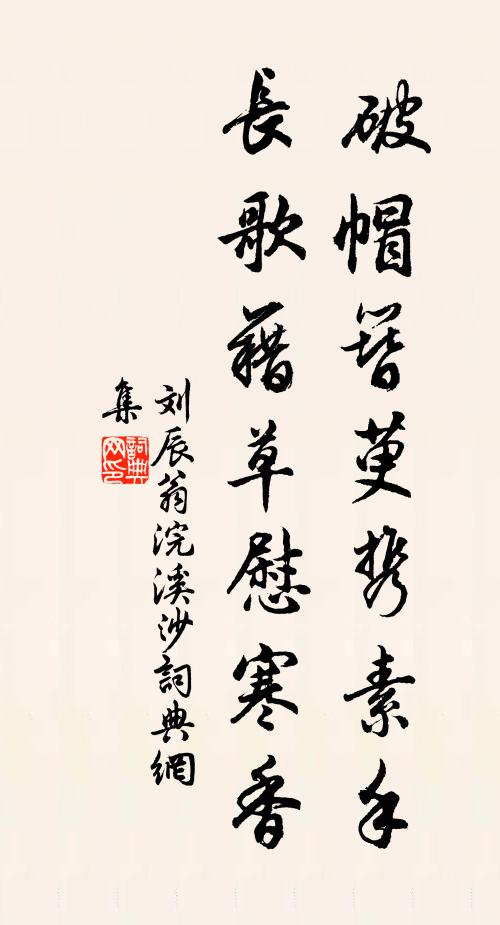 破帽簪萸携素手
長歌藉草慰寒香
刘辰翁浣溪沙詞典網
集
詞典网印